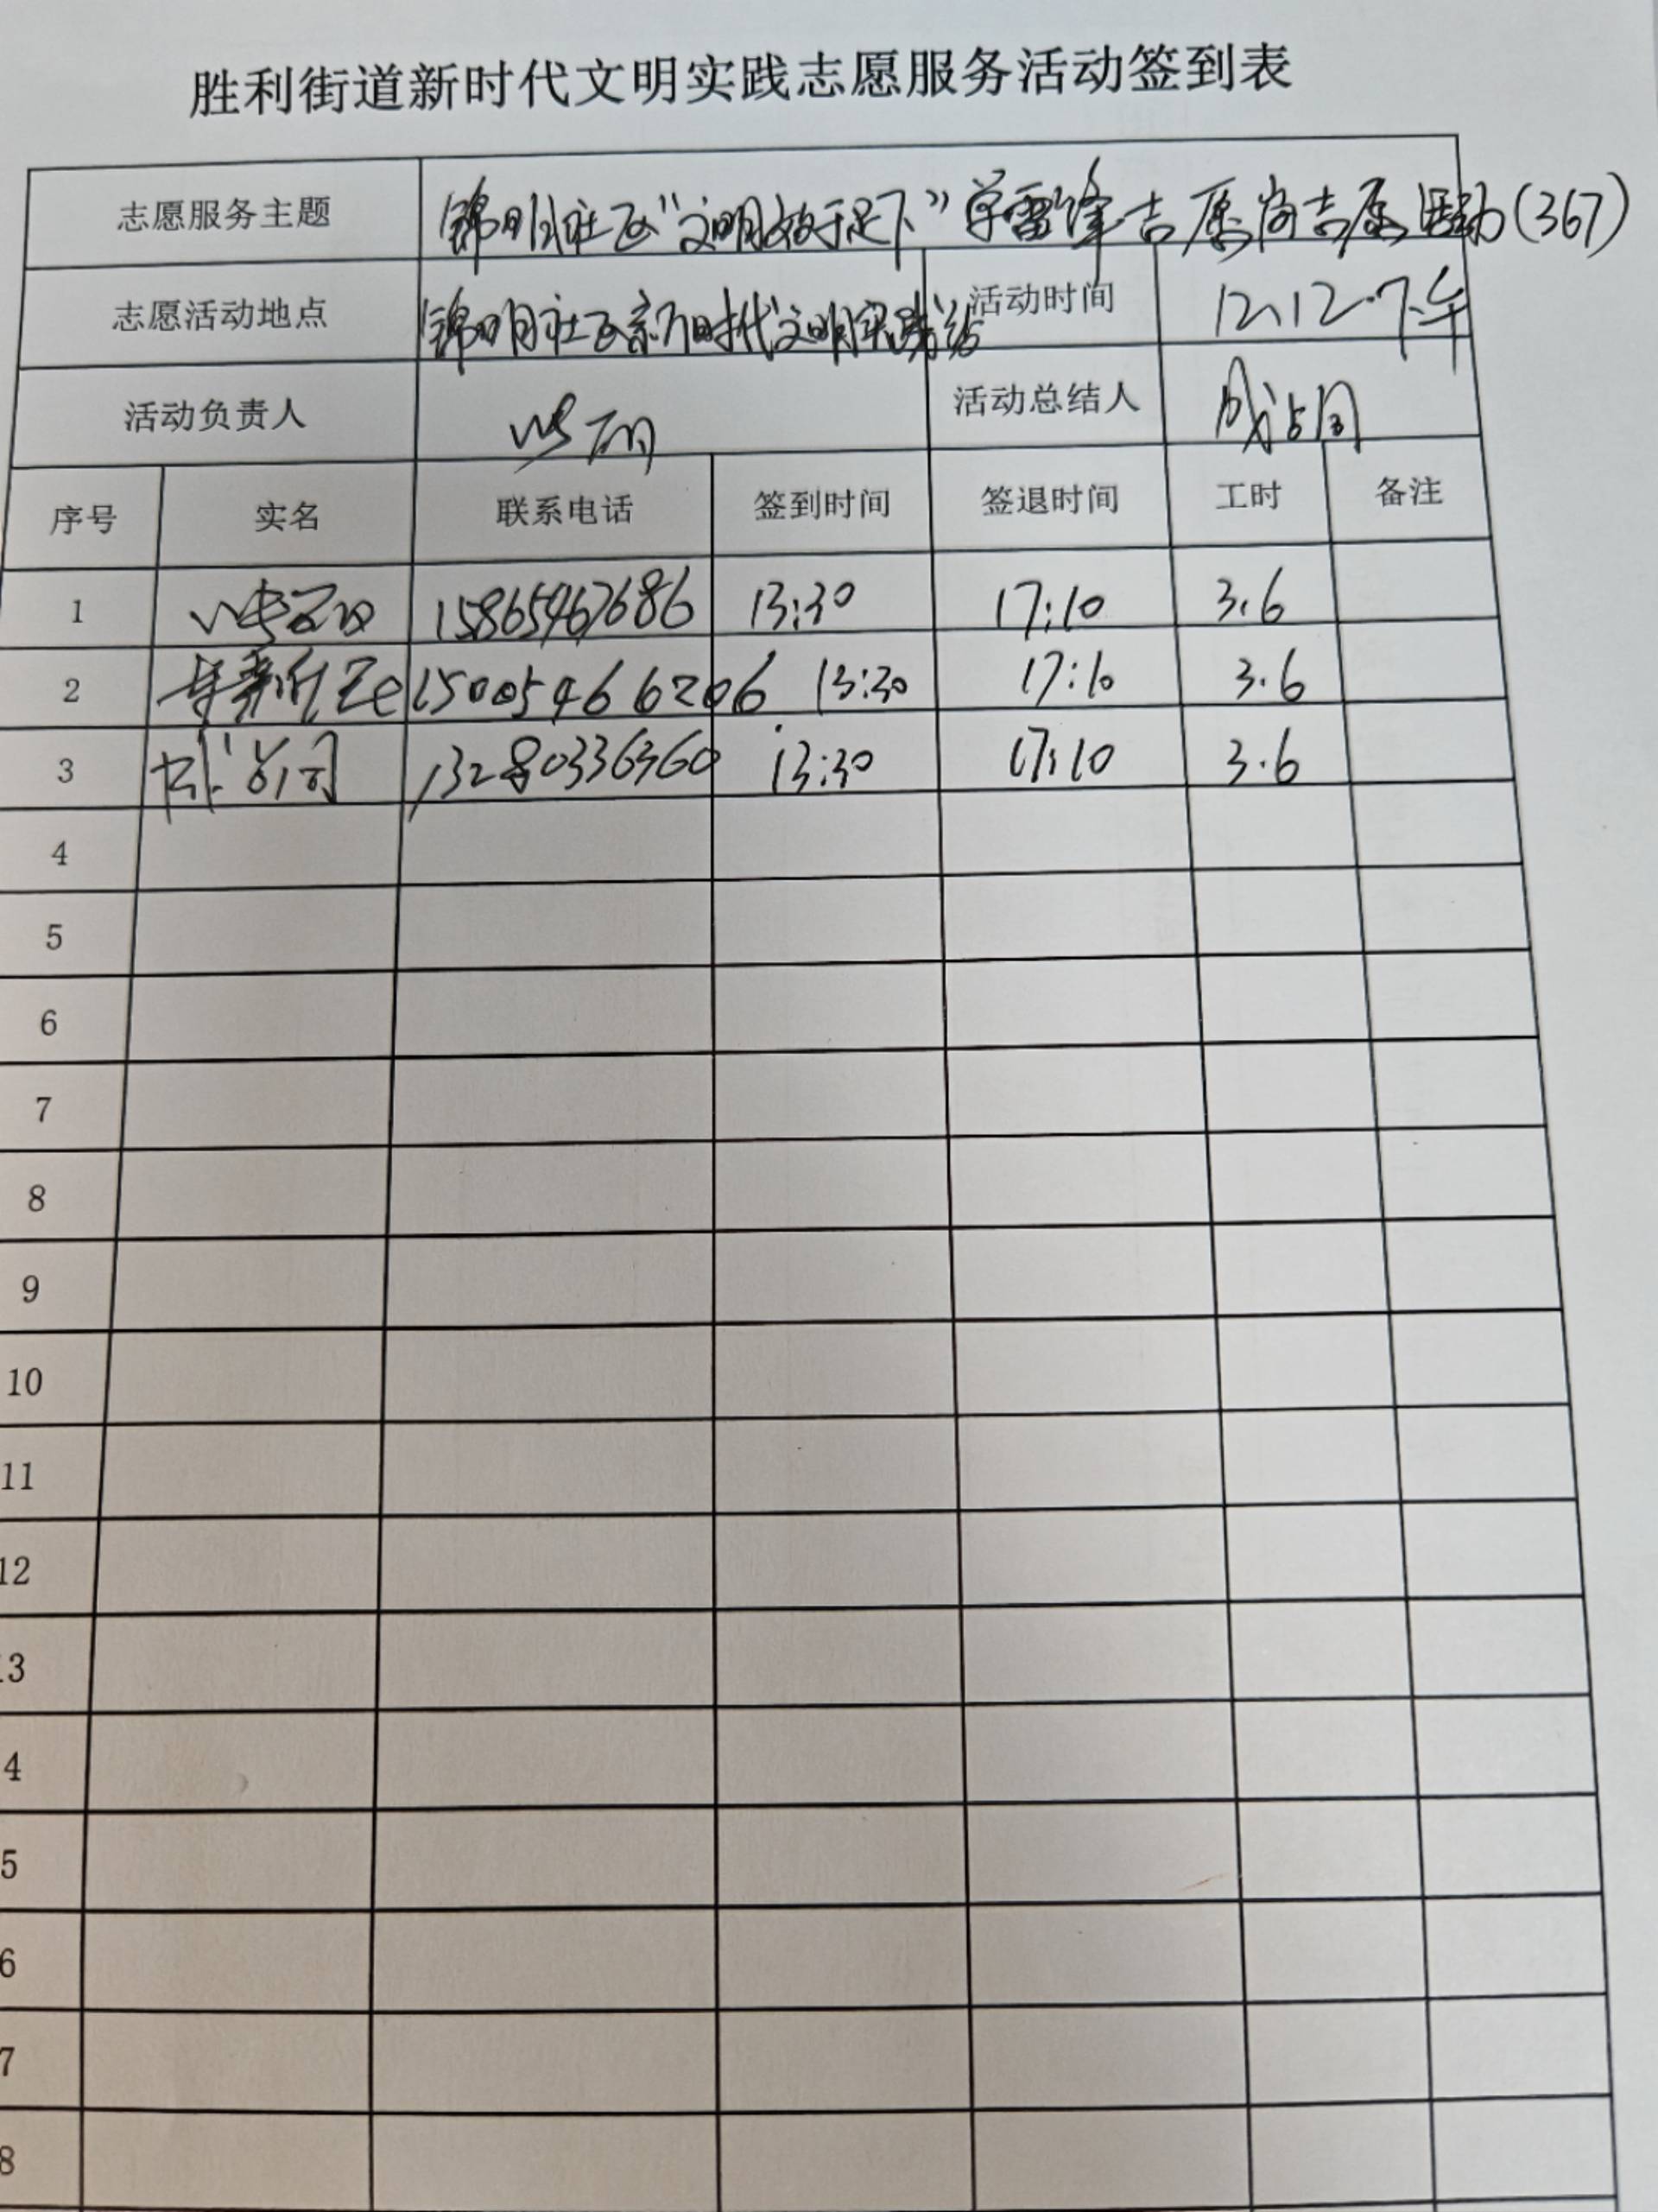 胜利街道新时代文明实践志愿服务活动签到表
志愿服务主题 锦明社区“文明始于足下”学雷锋志愿岗志愿活动(367)
志愿活动地点 锦明社区新时代文明实践站 活动时间 12.12.下午
活动负责人 活动总结人
序号 实名 联系电话 签到时间 签退时间 工时 备注
1 15865467686 13:30 17:10 3.6
2 15005466206 13:30 17:10 3.6
3 13280336360 13:30 17:10 3.6
4
5
6
7
8
9
10
11
12
13
4
5
6
7
8